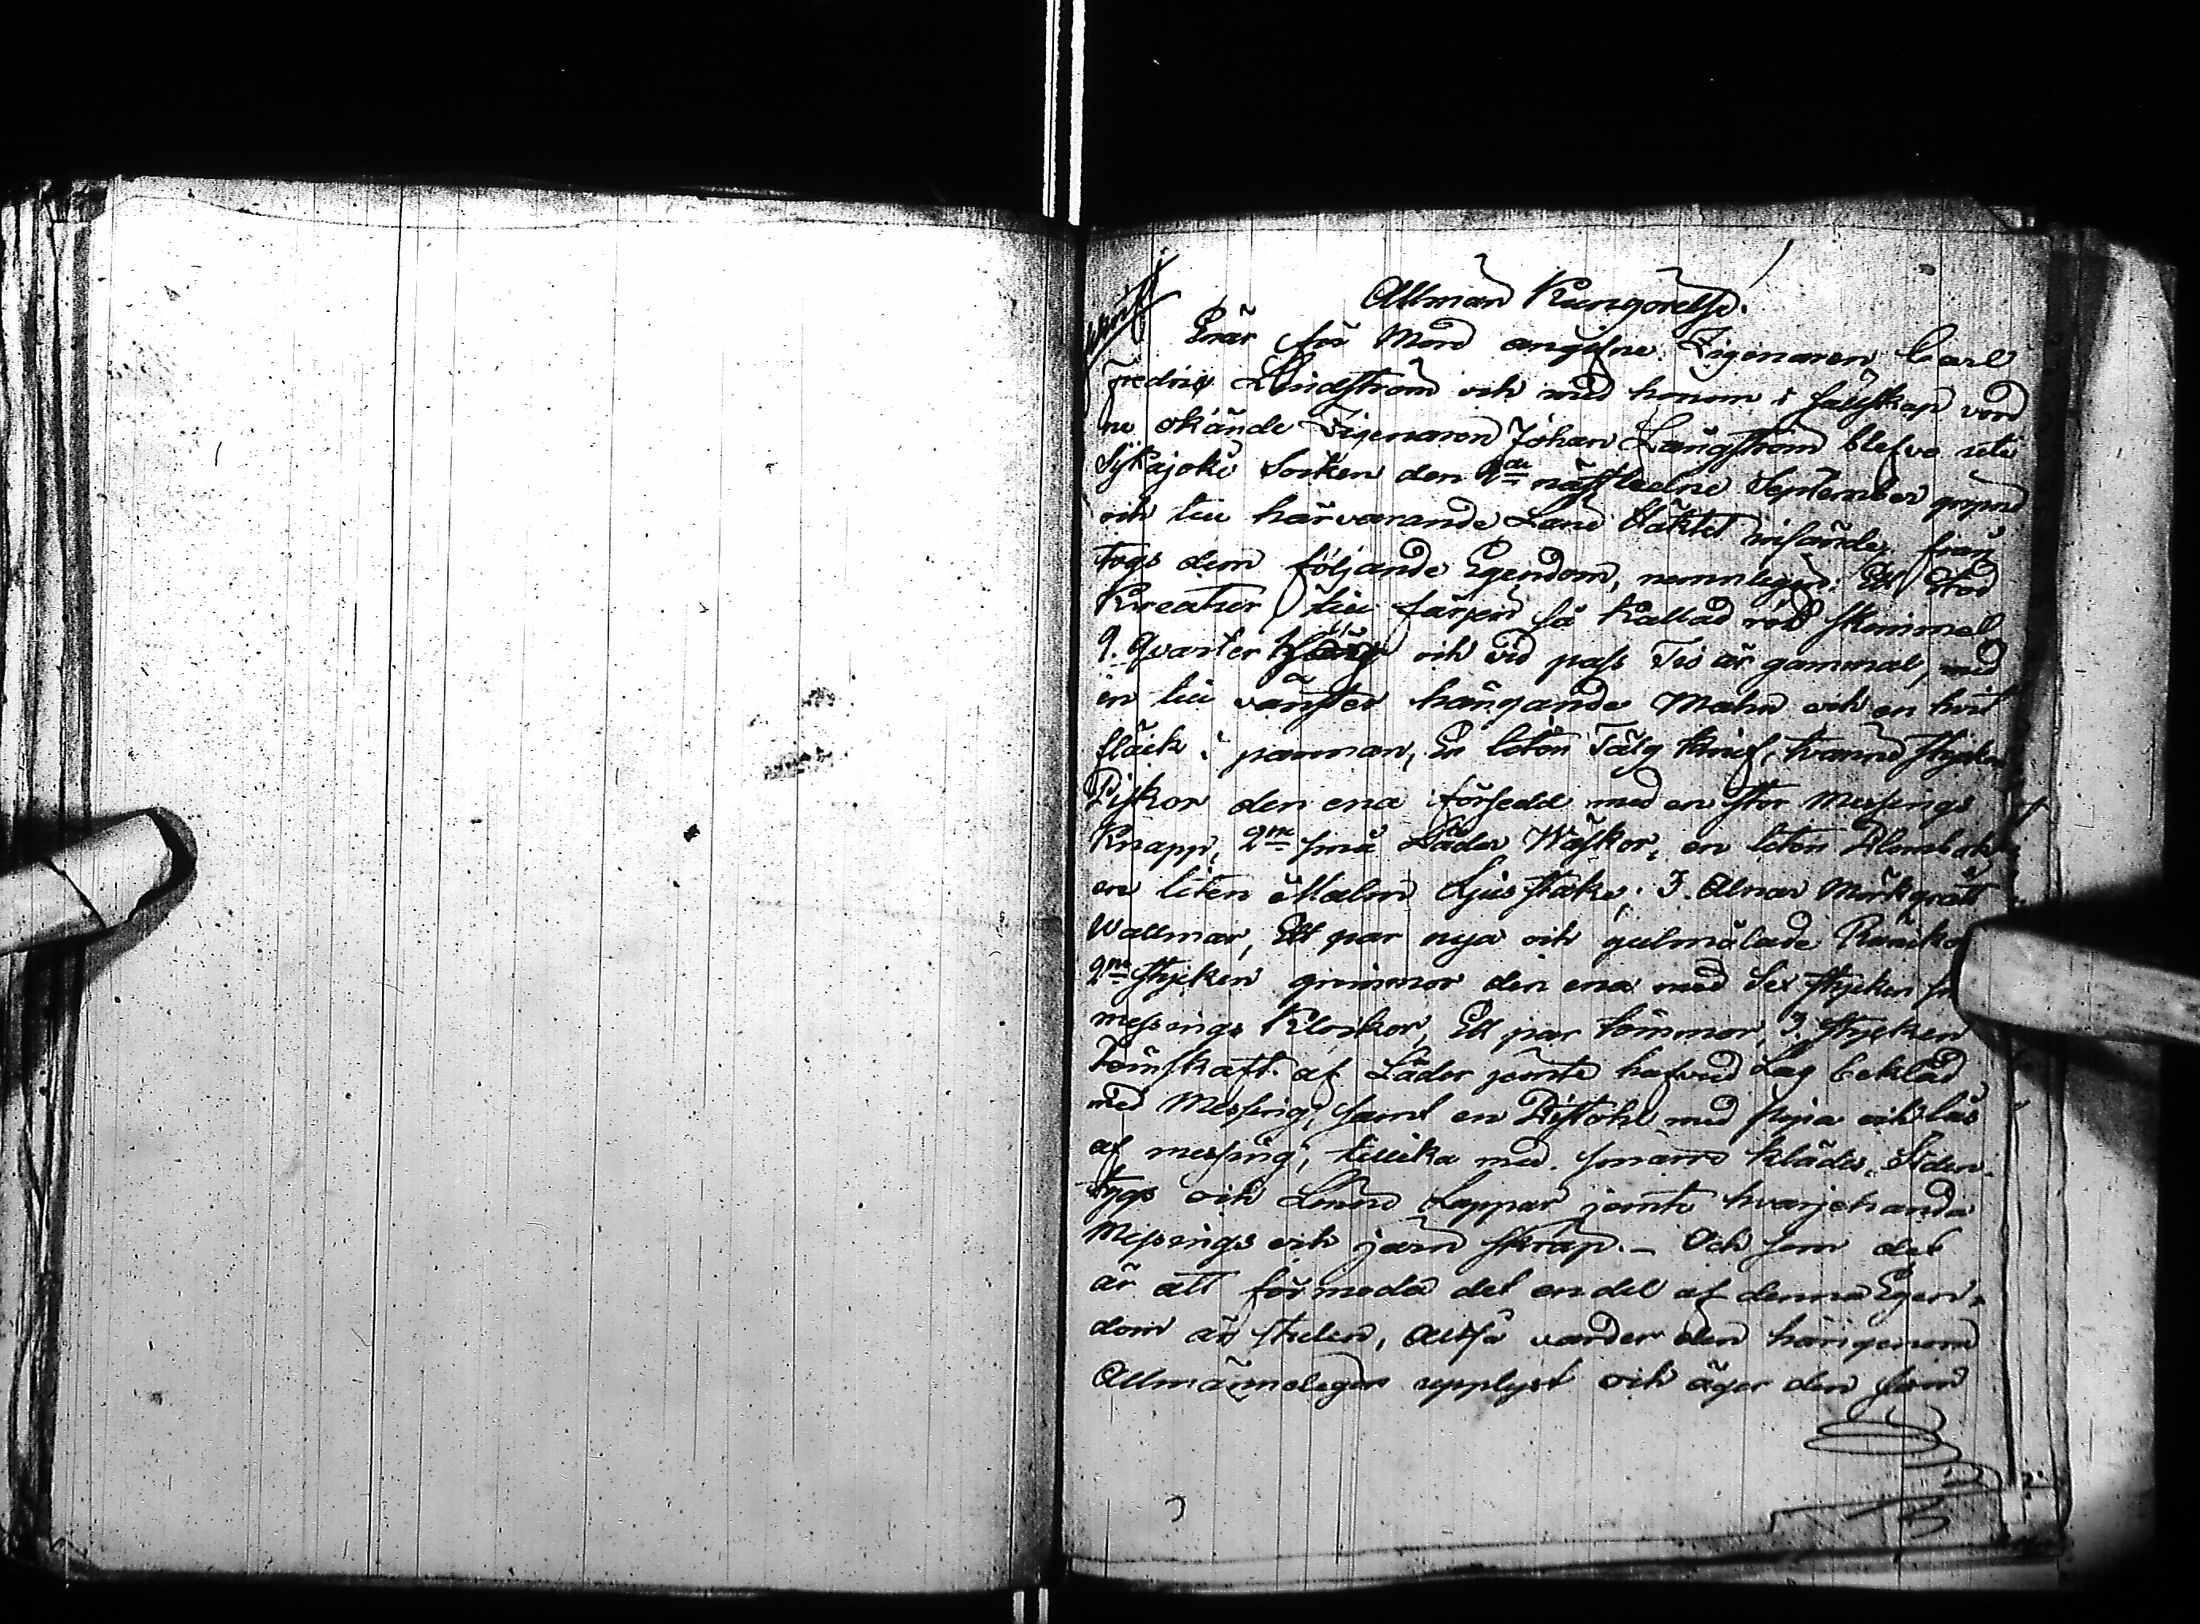 Allmän Kungörelse.
Enär för Mord angifne Zigenaren Carl
Fredric Lindström och med honom i sällskap vord
ne okände Zigenaren Johan Långström blefvo uti
Sijkajoki Socken den 2de nästledne September gripne
och till härvarande Läne Häktet införde, från
togs dem följande Egendom, nemnligen: Ett Stod
Kreatur till färgen så kallad röd skimmel
9. Qvarter hög och vid pass Tio år gammal, med
en till vänster hängande Mahn och en hvit
fläck i pannan, En liten Tälg knif, tvänne stycken
Piskor den ena försedd med en stor Messings
Knapp, 2ne små Läder Wäskor, en liten
en liten Malm Ljusstake, 3. Alnar Mörkgrått
Wallmar, Ett par nya och gulmålade
2ne stycken grimmor den ena med Sex stycken
messings Klockor, Ett par tömmor, 3 stycken
Tömskaft af Läder jemte hufvud Lag beklädd
med Messing, samt en Pistohl med pipa och lås
af messing, tillika med smärre kläder, Siden
tygs och Linne Lappar jemte hvarjehanda
Messings och jern skrap. – Och som det
är att förmoda det en del af denna Egen-
dom är stulen, Altså varder den härigenom
Allmänneligen upplyst och äger den som